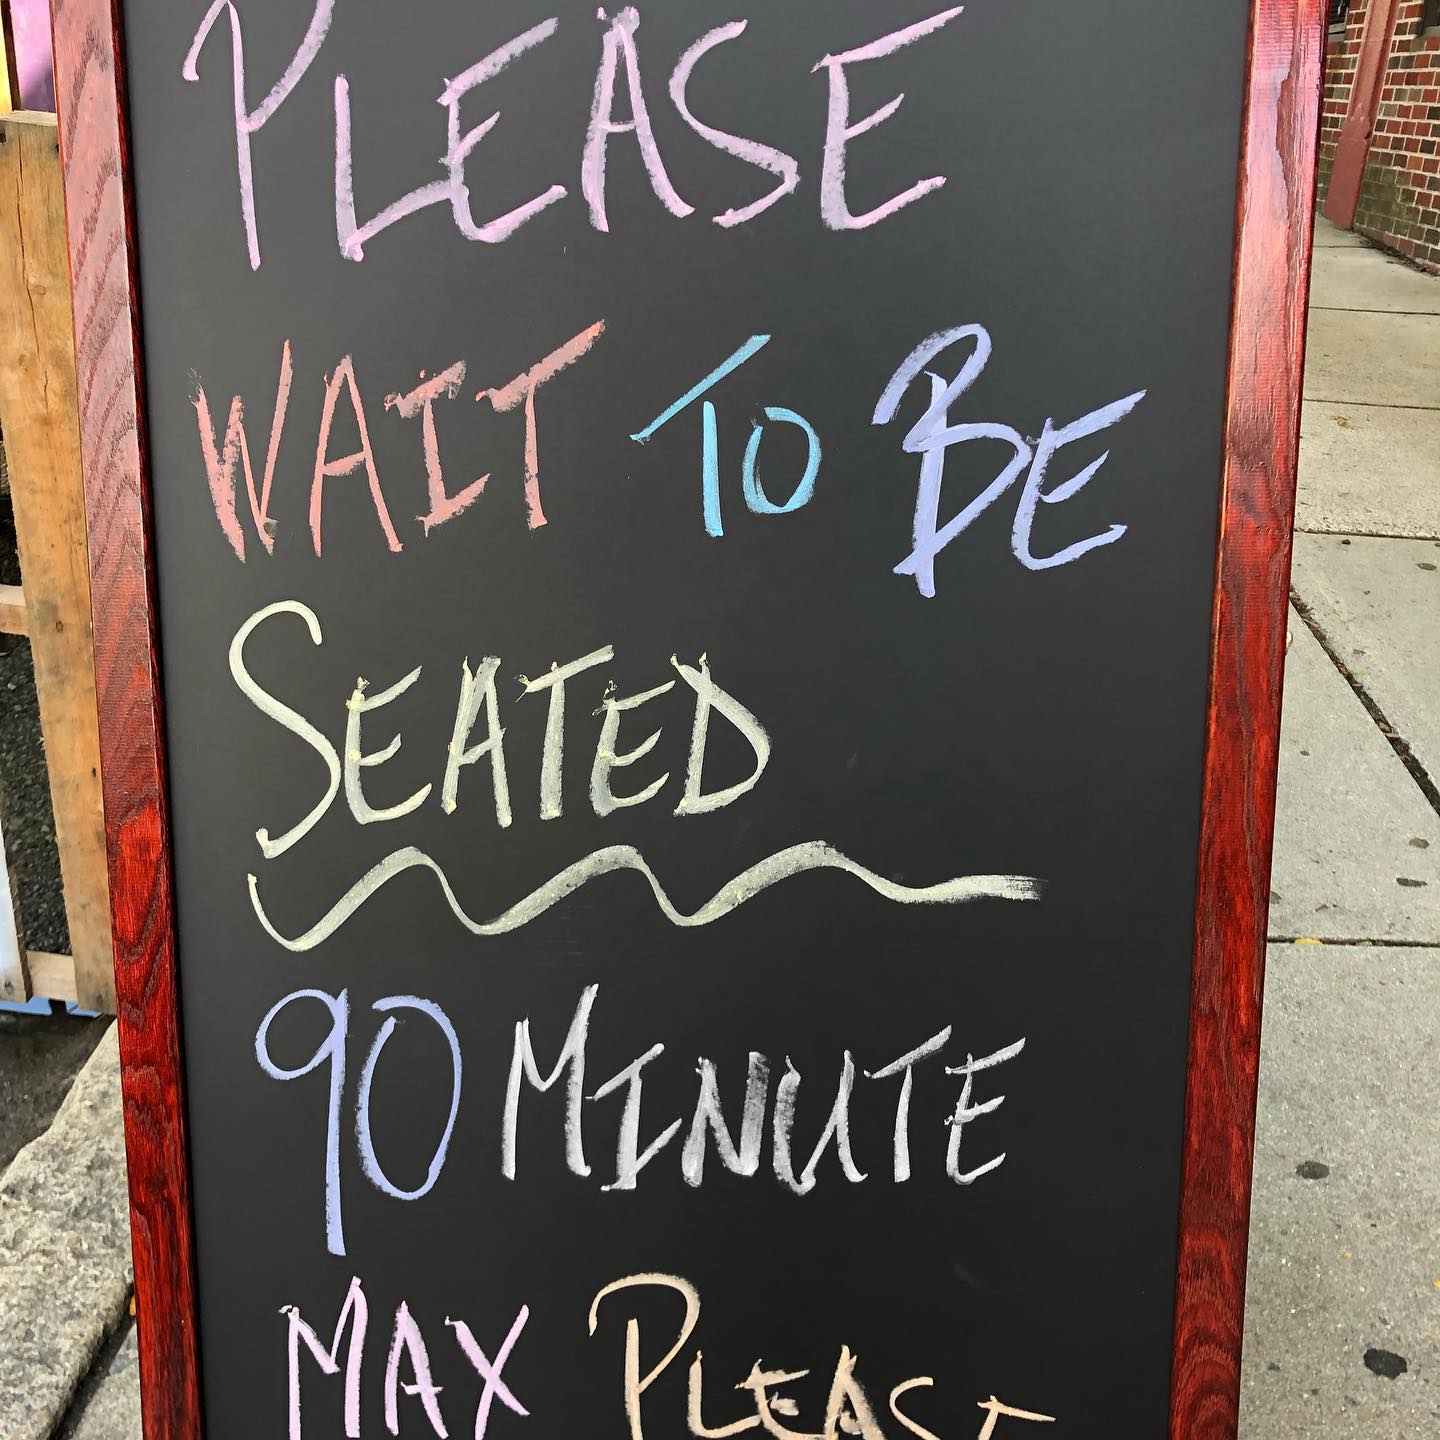 PLEASE
WAIT TO BE
SEATED
90 MINUTE
MAX PLEASE